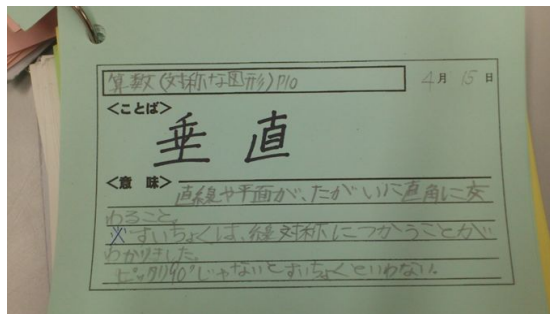 算数(対称な図形)P10
4月 15日
<ことば>
垂直
<意 味>
直線や平面が、たがいに直角に交
わること。
※すいちょくは、線対称につかうことが
わかりました。
ピッタリ90°じゃないとすいちょくといわない。